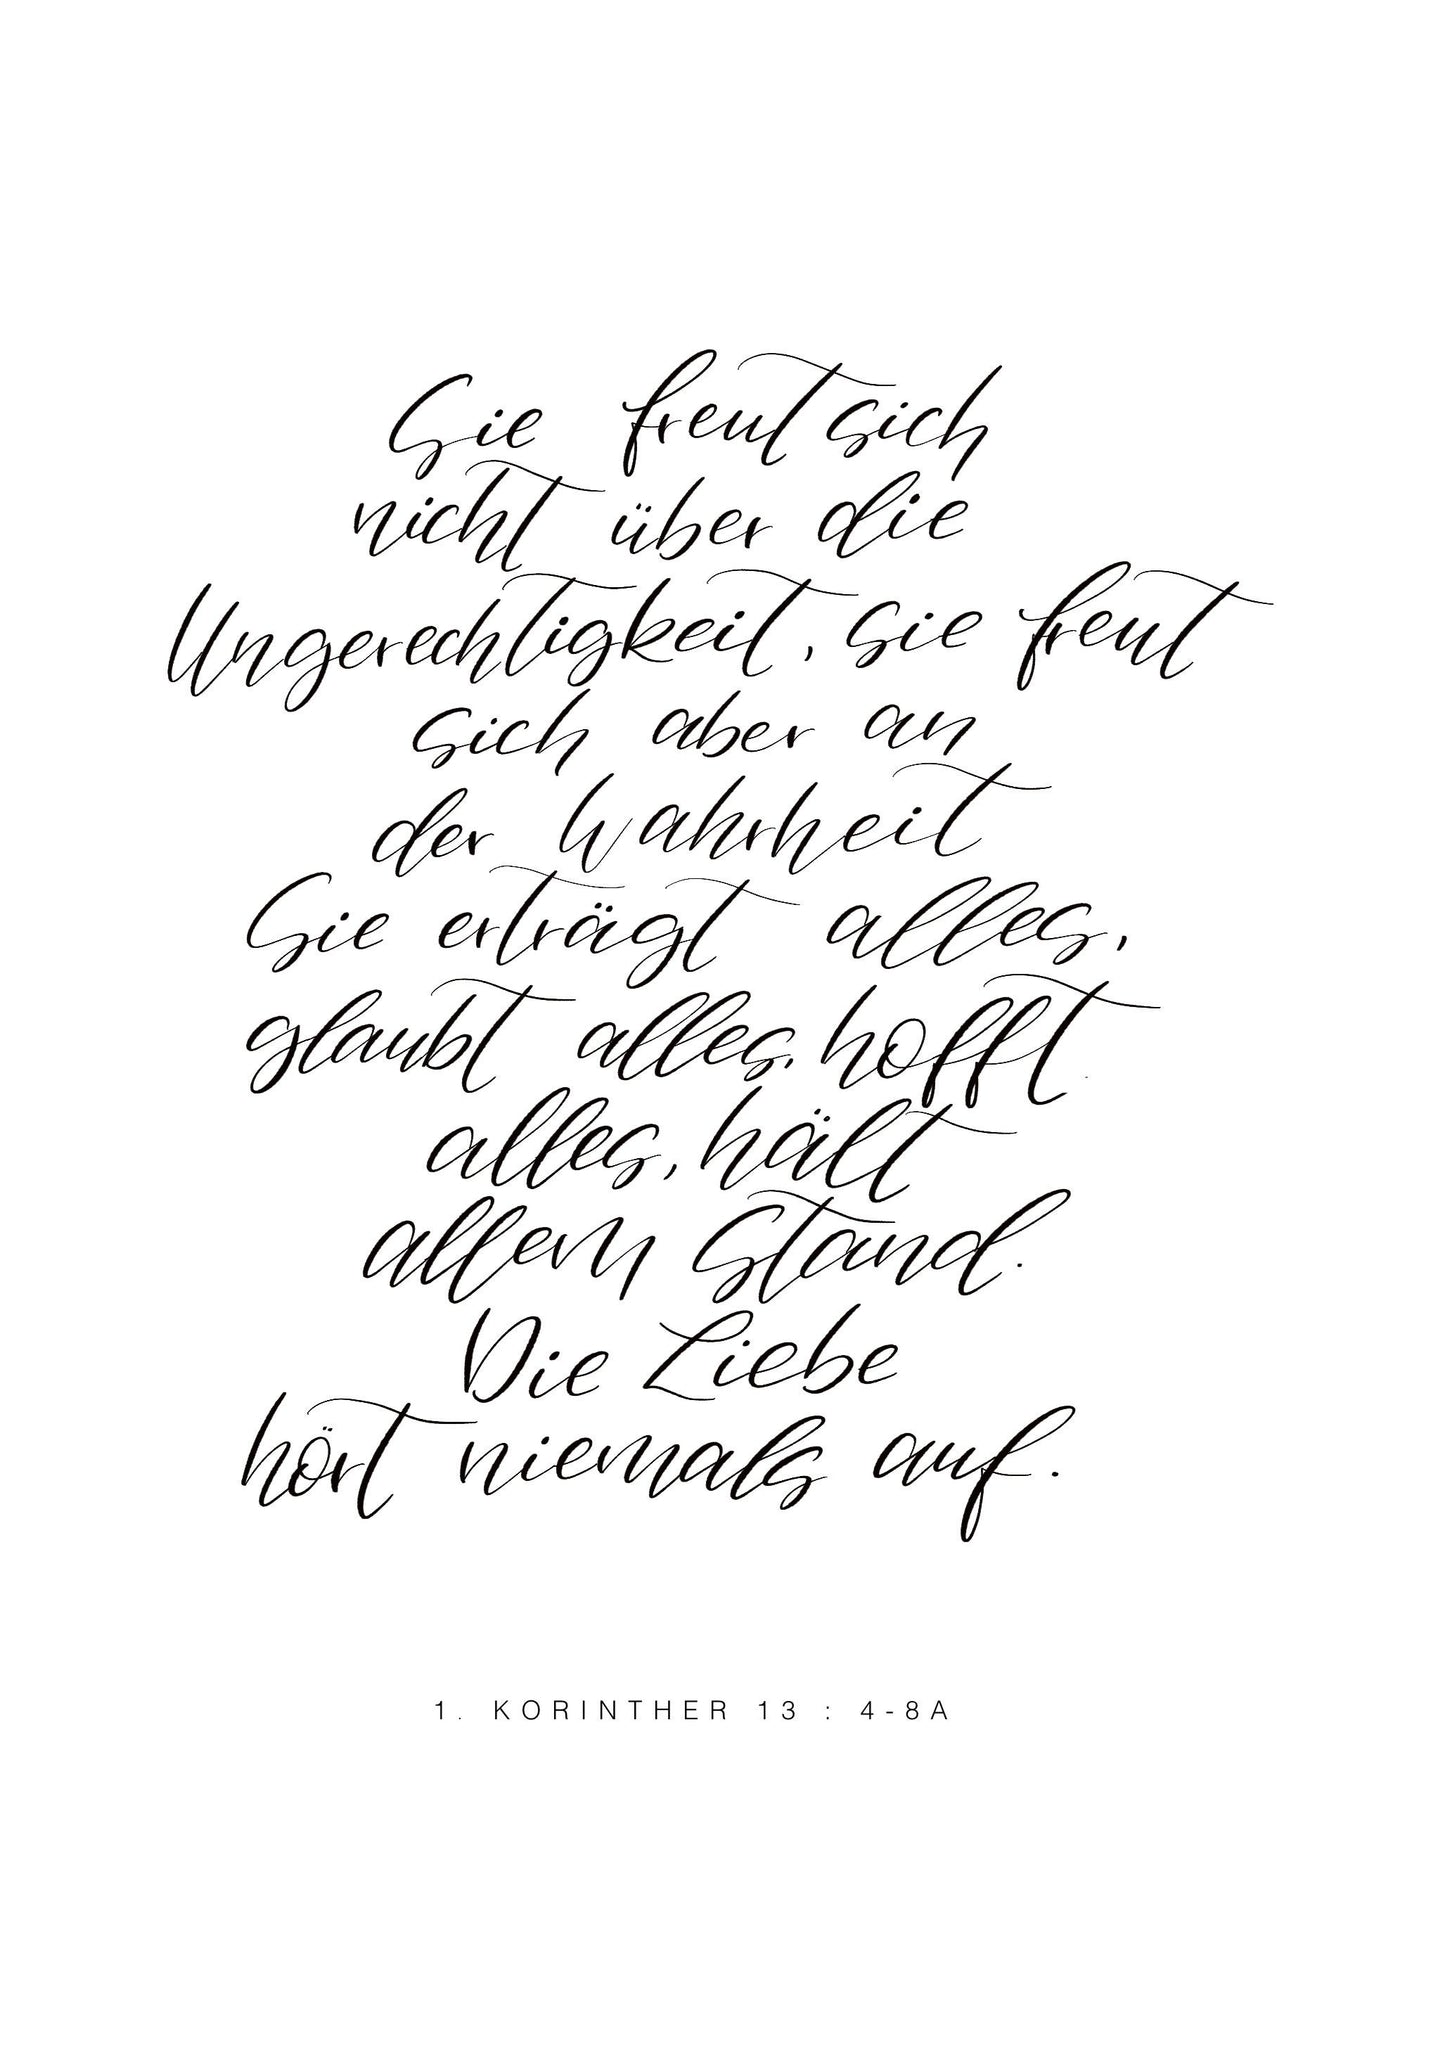 Sie freut sich
nicht über die
Ungerechtigkeit, sie freut
sich aber an
der Wahrheit
Sie erträgt alles,
glaubt alles, hofft
alles, hält
allem Stand.
Die Liebe
hört niemals auf.
1. KORINTHER 13 : 4-8A